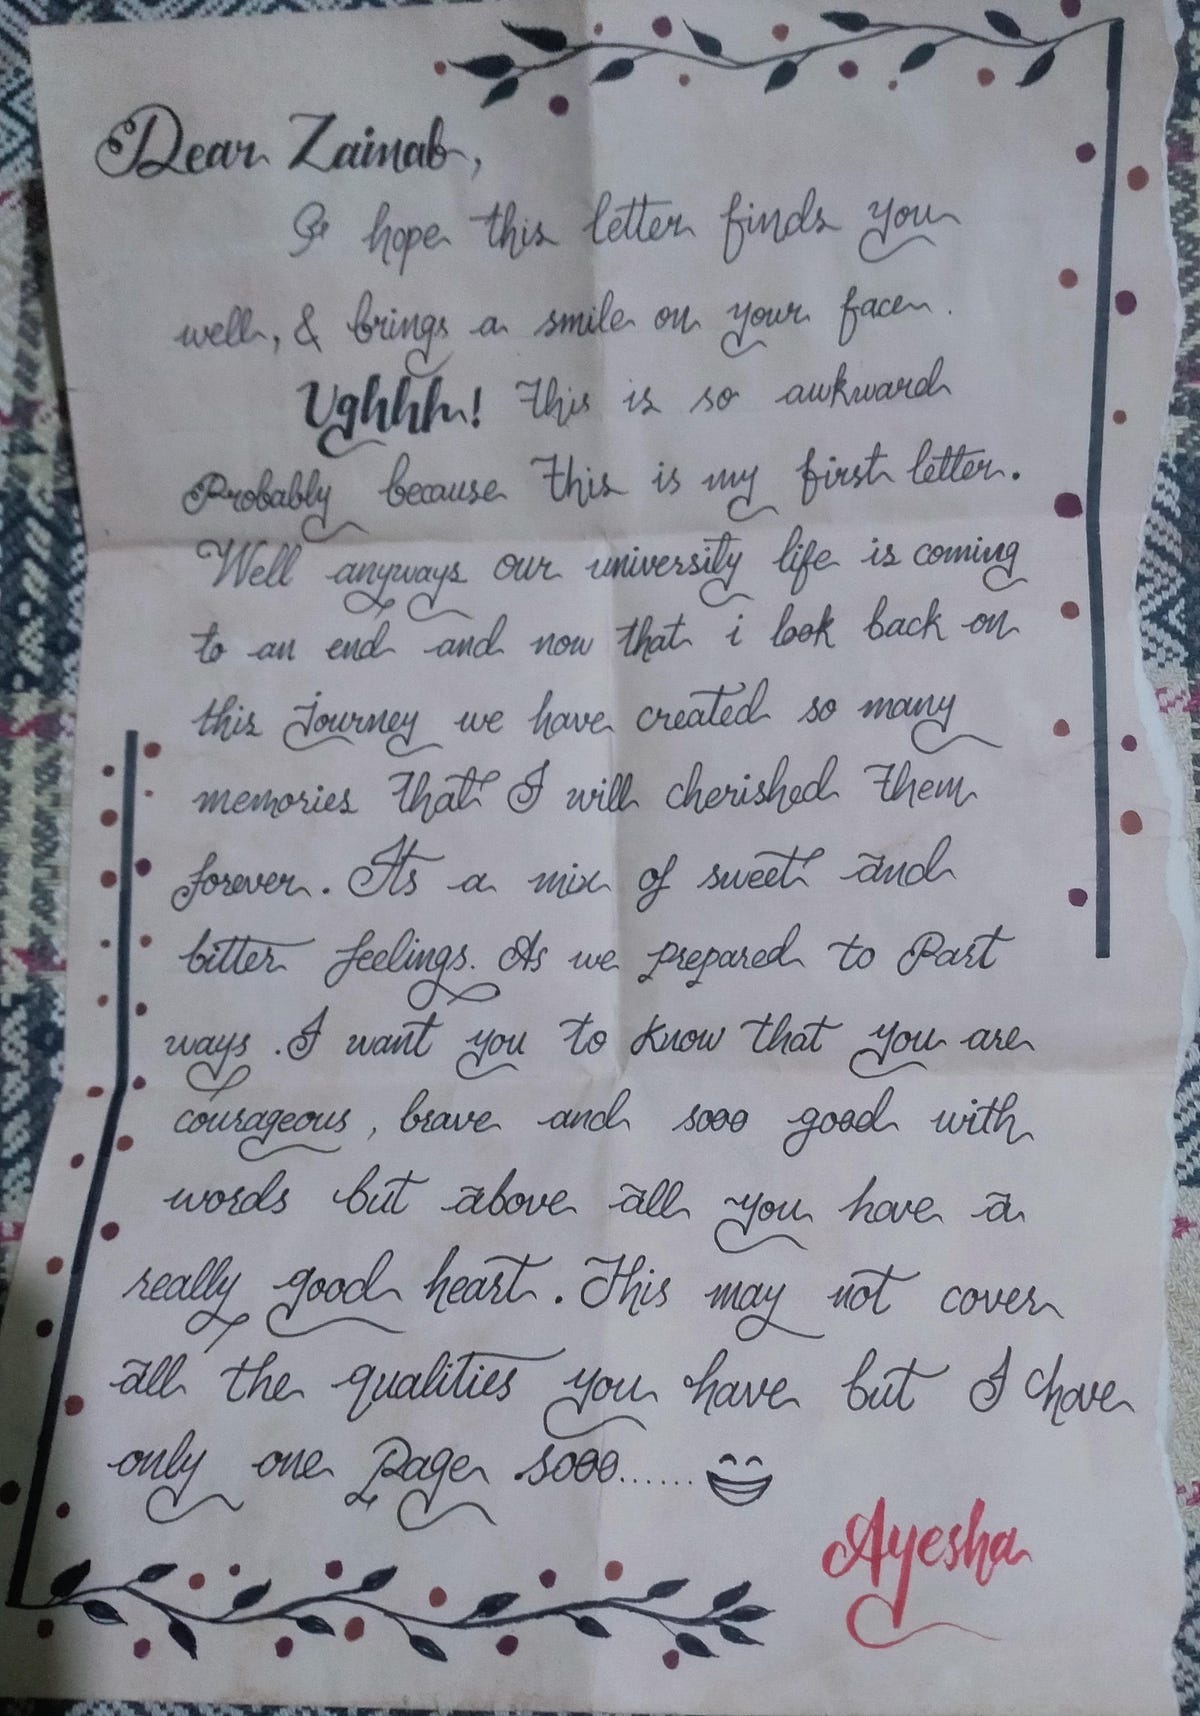 Dear Zainab,
I hope this letter finds you
well, & brings a smile on your face.
Ughhh! This is so awkward
Probably because this is my first letter.
Well anyways our university life is coming
to an end and now that i look back on
this journey we have created so many
memories that I will cherished them
forever. Its a mix of sweet and
bitter feelings. As we prepared to Part
ways. I want you to know that you are
courageous, brave and sooo good with
words but above all you have a
really good heart. This may not cover
all the qualities you have but I have
only one Page sooo......
Ayesha